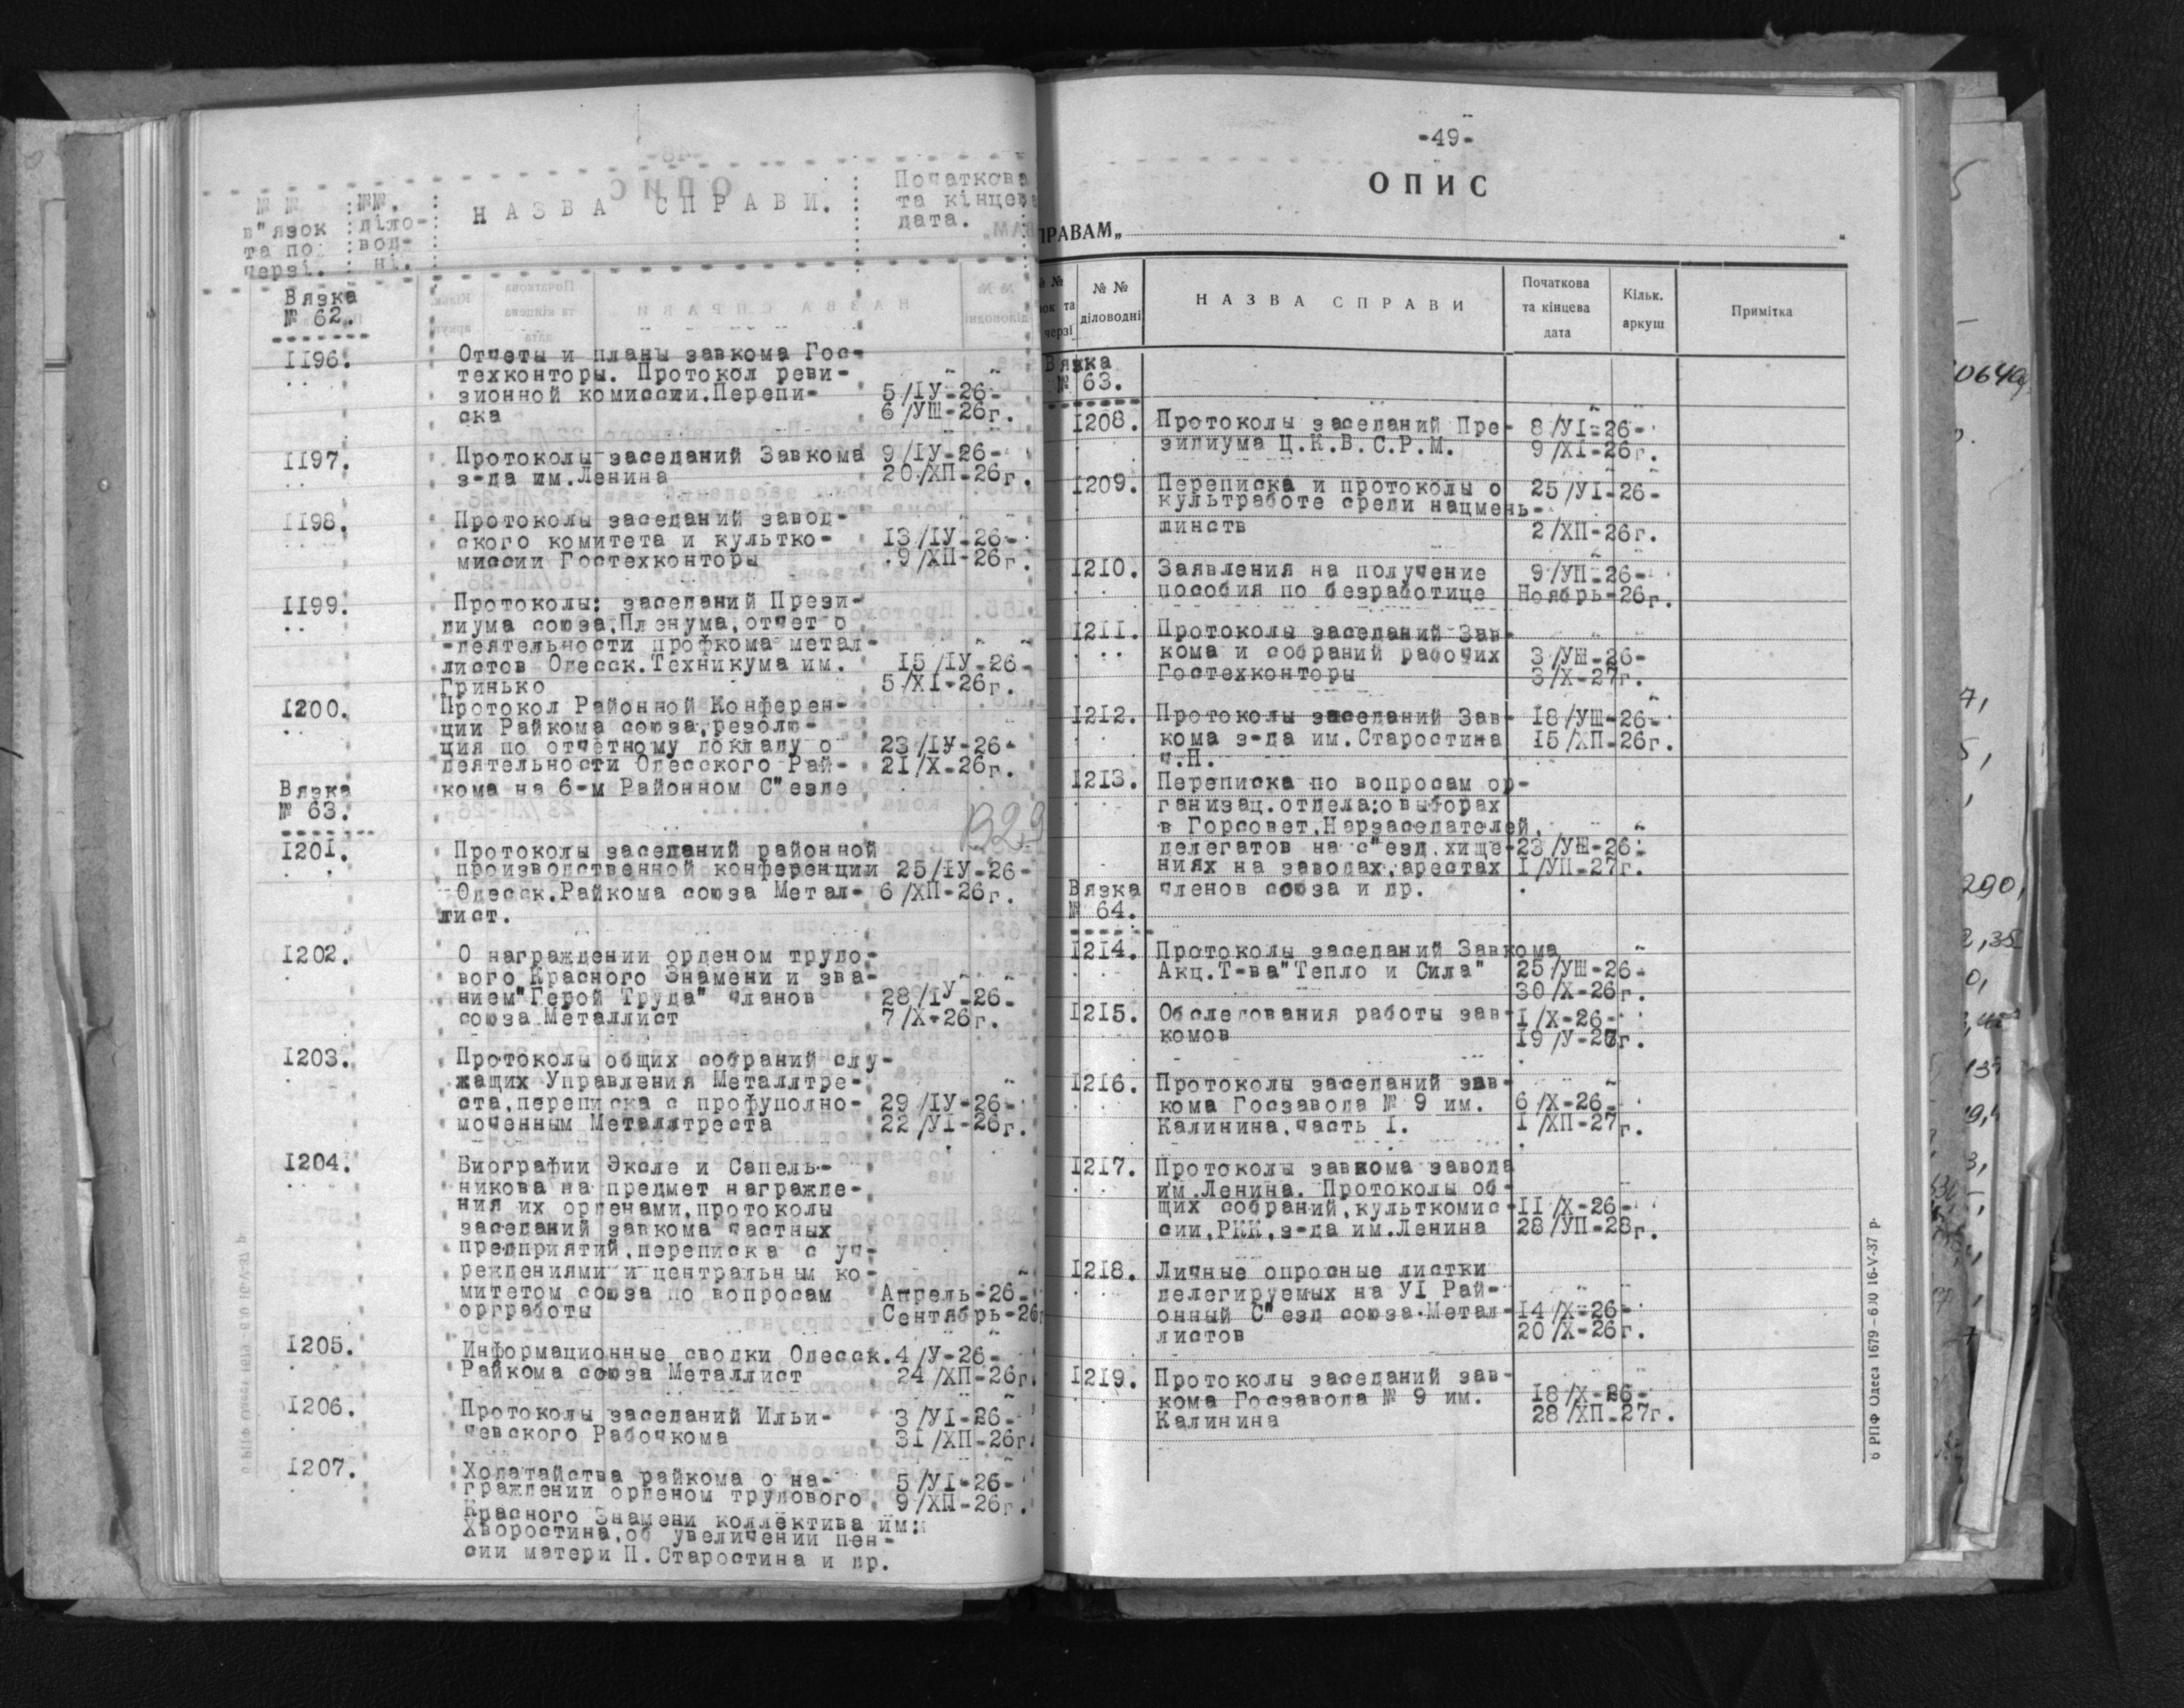 № № в"язок та по черзі.
№№. діло-вод-ні.
НАЗВА СПРАВИ.
Початкова та кінцева дата.
Вязка
№ 62.
1196.
Отчеты и планы завкома Гос-
техконторы. Протокол реви-
зионной комиссии.Перепи- 5/IУ-26-
ска 6/УШ-26г.
1197.
Протоколы заседаний Завкома 9/IУ-26-
з-да им.Ленина 20/ХП-26г.
1198.
Протоколы заседаний завод-
ского комитета и культко- 13/IУ-26-
миссии Гостехконторы 9/ХП-26г.
1199.
Протоколы: заседаний Прези-
диума союза,Пленума,отчет о
деятельности профкома метал-
листов Одесск.Техникума им. 15/IУ-26-
Гринько 5/XI-26г.
1200.
Протокол Районной Конферен-
ции Райкома союза,резолю-
ция по отчетному докладу о 23/IУ-26-
деятельности Одесского Рай- 21/Х-26г.
кома на 6-м Районном С"езде
Вязка
№ 63.
1201.
Протоколы заседаний районной
производственной конференции 25/IУ-26-
Одесск.Райкома союза Метал- 6/ХП-26г.
лист.
1202.
О награждении орденом трудо-
вого Красного Знамени и зва-
нием"Герой Труда" чланов 28/IУ-26-
союза Металлист 7/Х-26г.
1203.
Протоколы общих собраний слу-
жащих Управления Металлтре-
ста,переписка с профуполно- 29/IУ-26-
моченным Металлтреста 22/УI-26г.
1204.
Биографии Эксле и Сапель-
никова на предмет награжде-
ния их орденами,протоколы
заседаний завкома частных
предприятий,переписка с уч-
реждениями и центральным ко-
митетом союза по вопросам Апрель-26-
оргработы Сентябрь-26г
1205.
Информационные сводки Одесск. 4/У-26-
Райкома союза Металлист 24/ХП-26г.
1206.
Протоколы заседаний Ильи- 3/УI-26-
чевского Рабочкома 31/ХП-26г.
1207.
Ходатайства райкома о на- 5/УI-26-
граждении орденом трудового 9/ХП-26г.
Красного Знамени коллектива им:
Хворостина,об увеличении пен-
сии матери П.Старостина и др.
-49-
ОПИС
ПРАВАМ„
№ № ок та черзі
№ № діловодні
НАЗВА СПРАВИ
Початкова та кінцева дата
Кільк. аркуш
Примітка
Вязка
№ 63.
1208. Протоколы заседаний Пре- 8/УI-26-
зидиума Ц.К.В.С.Р.М. 9/XI-26г.
1209. Переписка и протоколы о 25/УI-26-
культработе среди нацмень-
шинств 2/ХП-26г.
1210. Заявления на получение 9/УП-26-
пособия по безработице Ноябрь-26г.
1211. Протоколы заседаний Зав-
кома и собраний рабочих 3/УШ-26-
Гостехконторы 3/Х-27г.
1212. Протоколы заседаний Зав- 18/УШ-26-
кома з-да им.Старостина 15/ХП-26г.
ч.Н.
1213. Переписка по вопросам ор-
ганизац.отдела:о выборах
в Горсовет,Нарзаседателей,
делегатов на с"езд,хище- 23/УШ-26-
ниях на заводах,арестах 1/УП-27г.
Вязка членов союза и др.
№ 64.
1214. Протоколы заседаний Завкома
Акц.Т-ва"Тепло и Сила" 25/УШ-26-
30/Х-26г.
1215. Обследования работы зав- 1/Х-26-
комов 19/У-27г.
1216. Протоколы заседаний зав-
кома Госзавода № 9 им. 6/Х-26-
Калинина,часть I. 1/ХП-27г.
1217. Протоколы завкома завода
им.Ленина. Протоколы об-
щих собраний,культкомис- 11/Х-26-
сии,РКК,з-да им.Ленина 28/УП-28г.
1218. Личные опросные листки
делегируемых на УI Рай-
онный С"езд союза Метал- 14/Х-26-
листов 20/Х-26г.
1219. Протоколы заседаний зав-
кома Госзавода № 9 им. 18/Х-26-
Калинина 28/ХП-27г.
6 РПФ Одеса 1679-630 16-V-37 р.